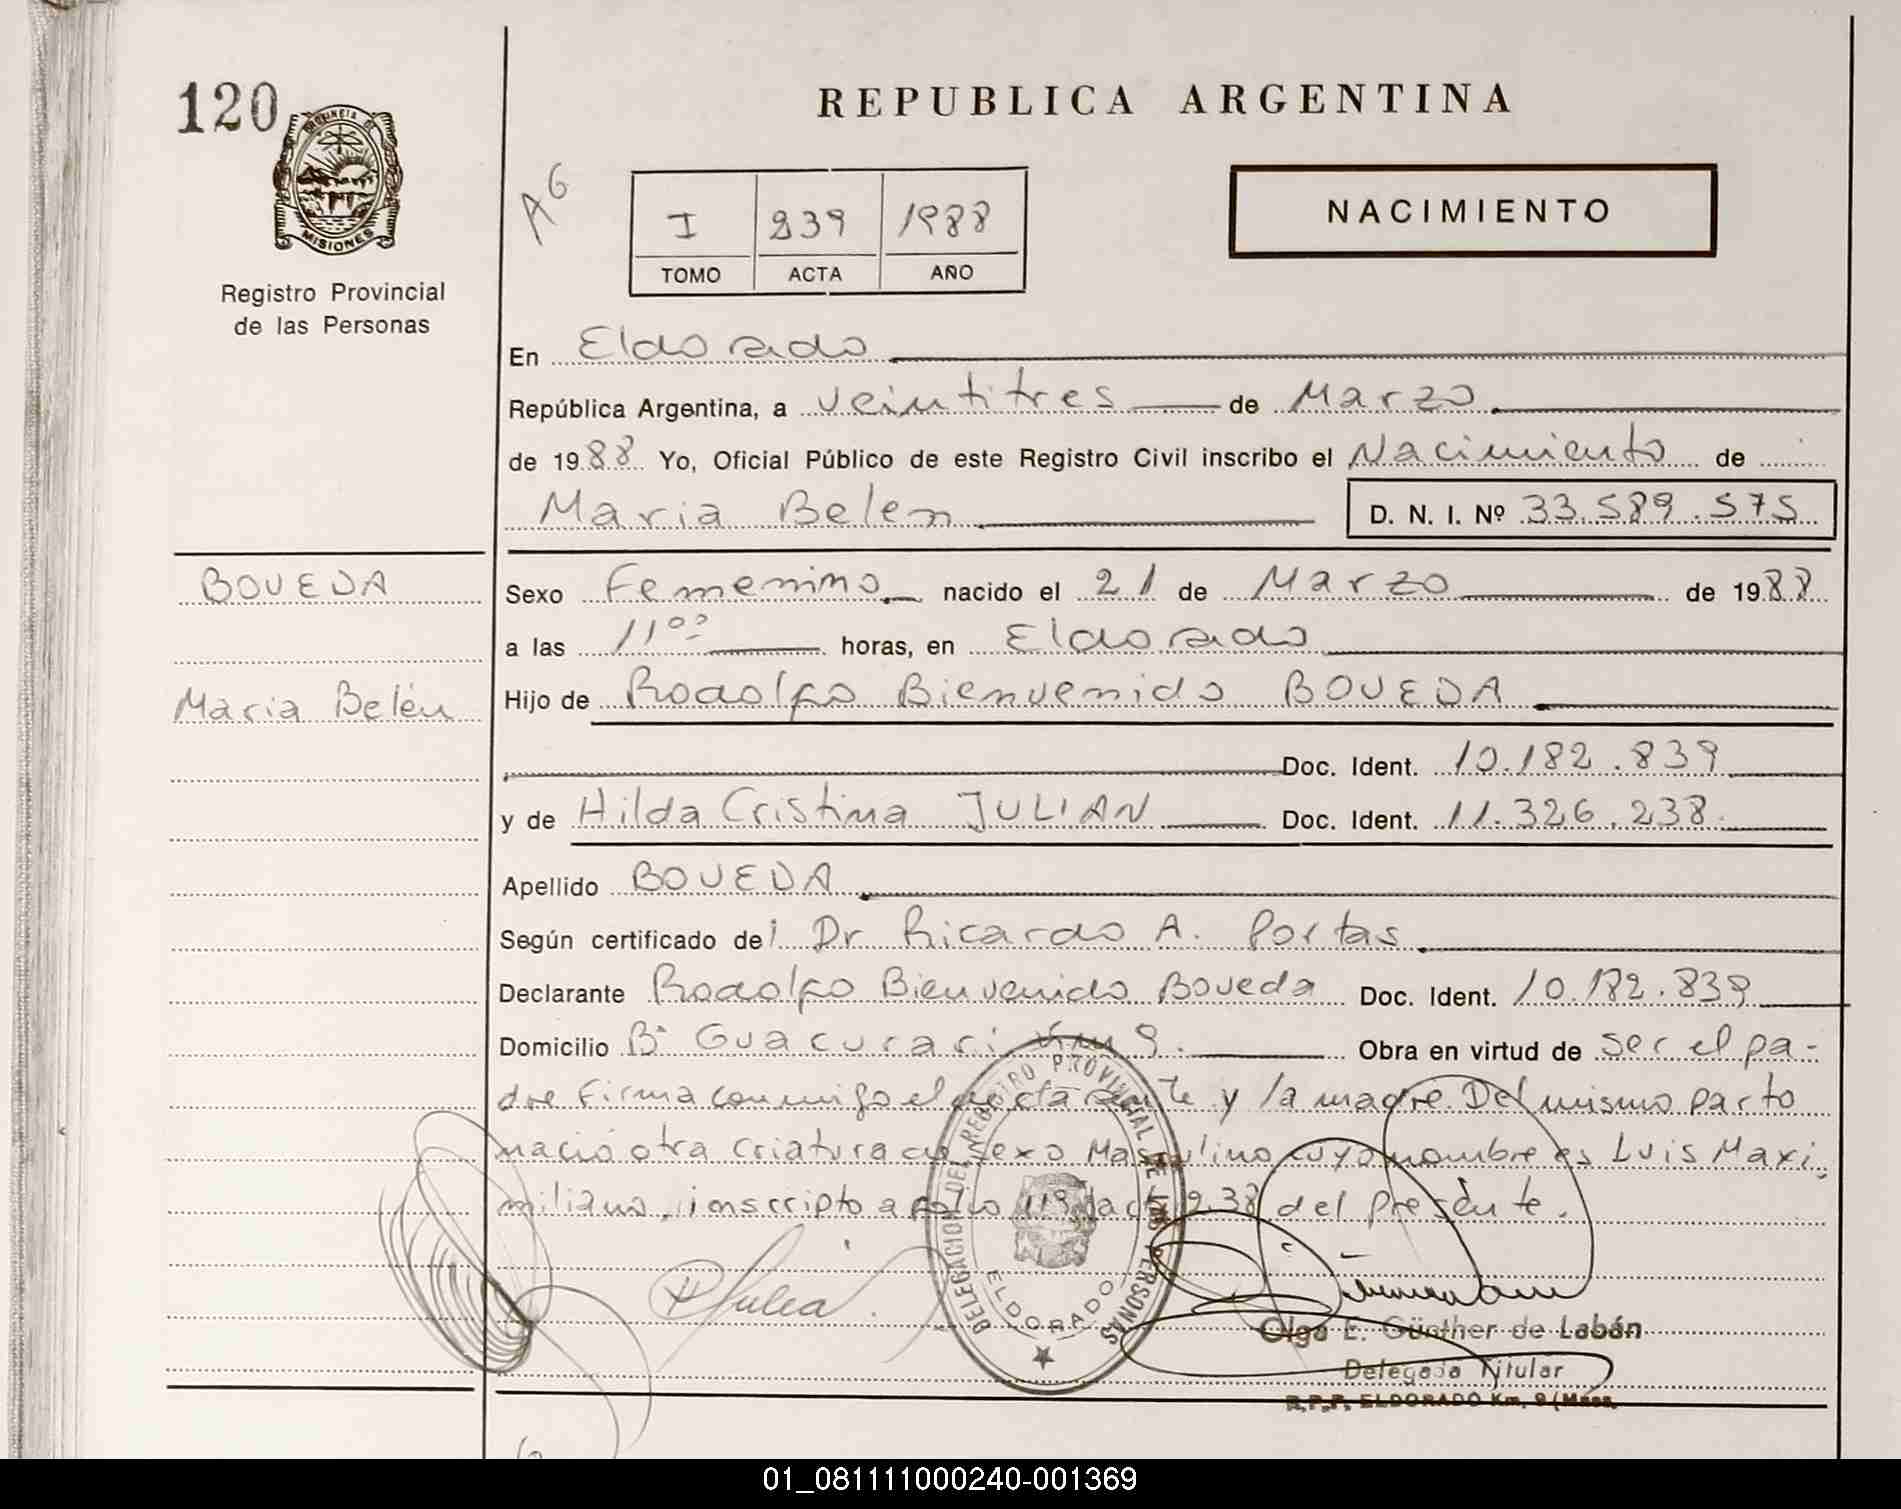 120
PROVINCIA DE
MISIONES
Registro Provincial
de las Personas
REPUBLICA ARGENTINA
A6
I 239 1988
TOMO ACTA AÑO
NACIMIENTO
En Eldorado
República Argentina, a veintitres de Marzo
de 1988 Yo, Oficial Público de este Registro Civil inscribo el Nacimiento de
Maria Belen D. N. I. Nº 33.589.575
BOVEDA
Maria Belén
Sexo Femenino nacido el 21 de Marzo de 1988
a las 11⁰⁰ horas, en Eldorado
Hijo de Rodolfo Bienvenido BOVEDA
Doc. Ident. 10.182.839
y de Hilda Cristina JULIAN Doc. Ident. 11.326.238
Apellido BOVEDA
Según certificado del Dr Ricardo A. Portas
Declarante Rodolfo Bienvenido Boveda Doc. Ident. 10.182.839
Domicilio Bº Guacurari km 9. Obra en virtud de ser el pa-
dre Firma conmigo el declarante y la madre. Del mismo parto
nació otra criatura de sexo Masculino cuyo nombre es Luis Maxi
miliano, inscripto a folio 119 acta 238 del presente.
DELEGACION DEL REGISTRO PROVINCIAL DE LAS PERSONAS
ELDORADO
Olga E. Günther de Labán
Delegada Titular
R.P.P. ELDORADO Km. 9 (Mnes.
01_081111000240-001369